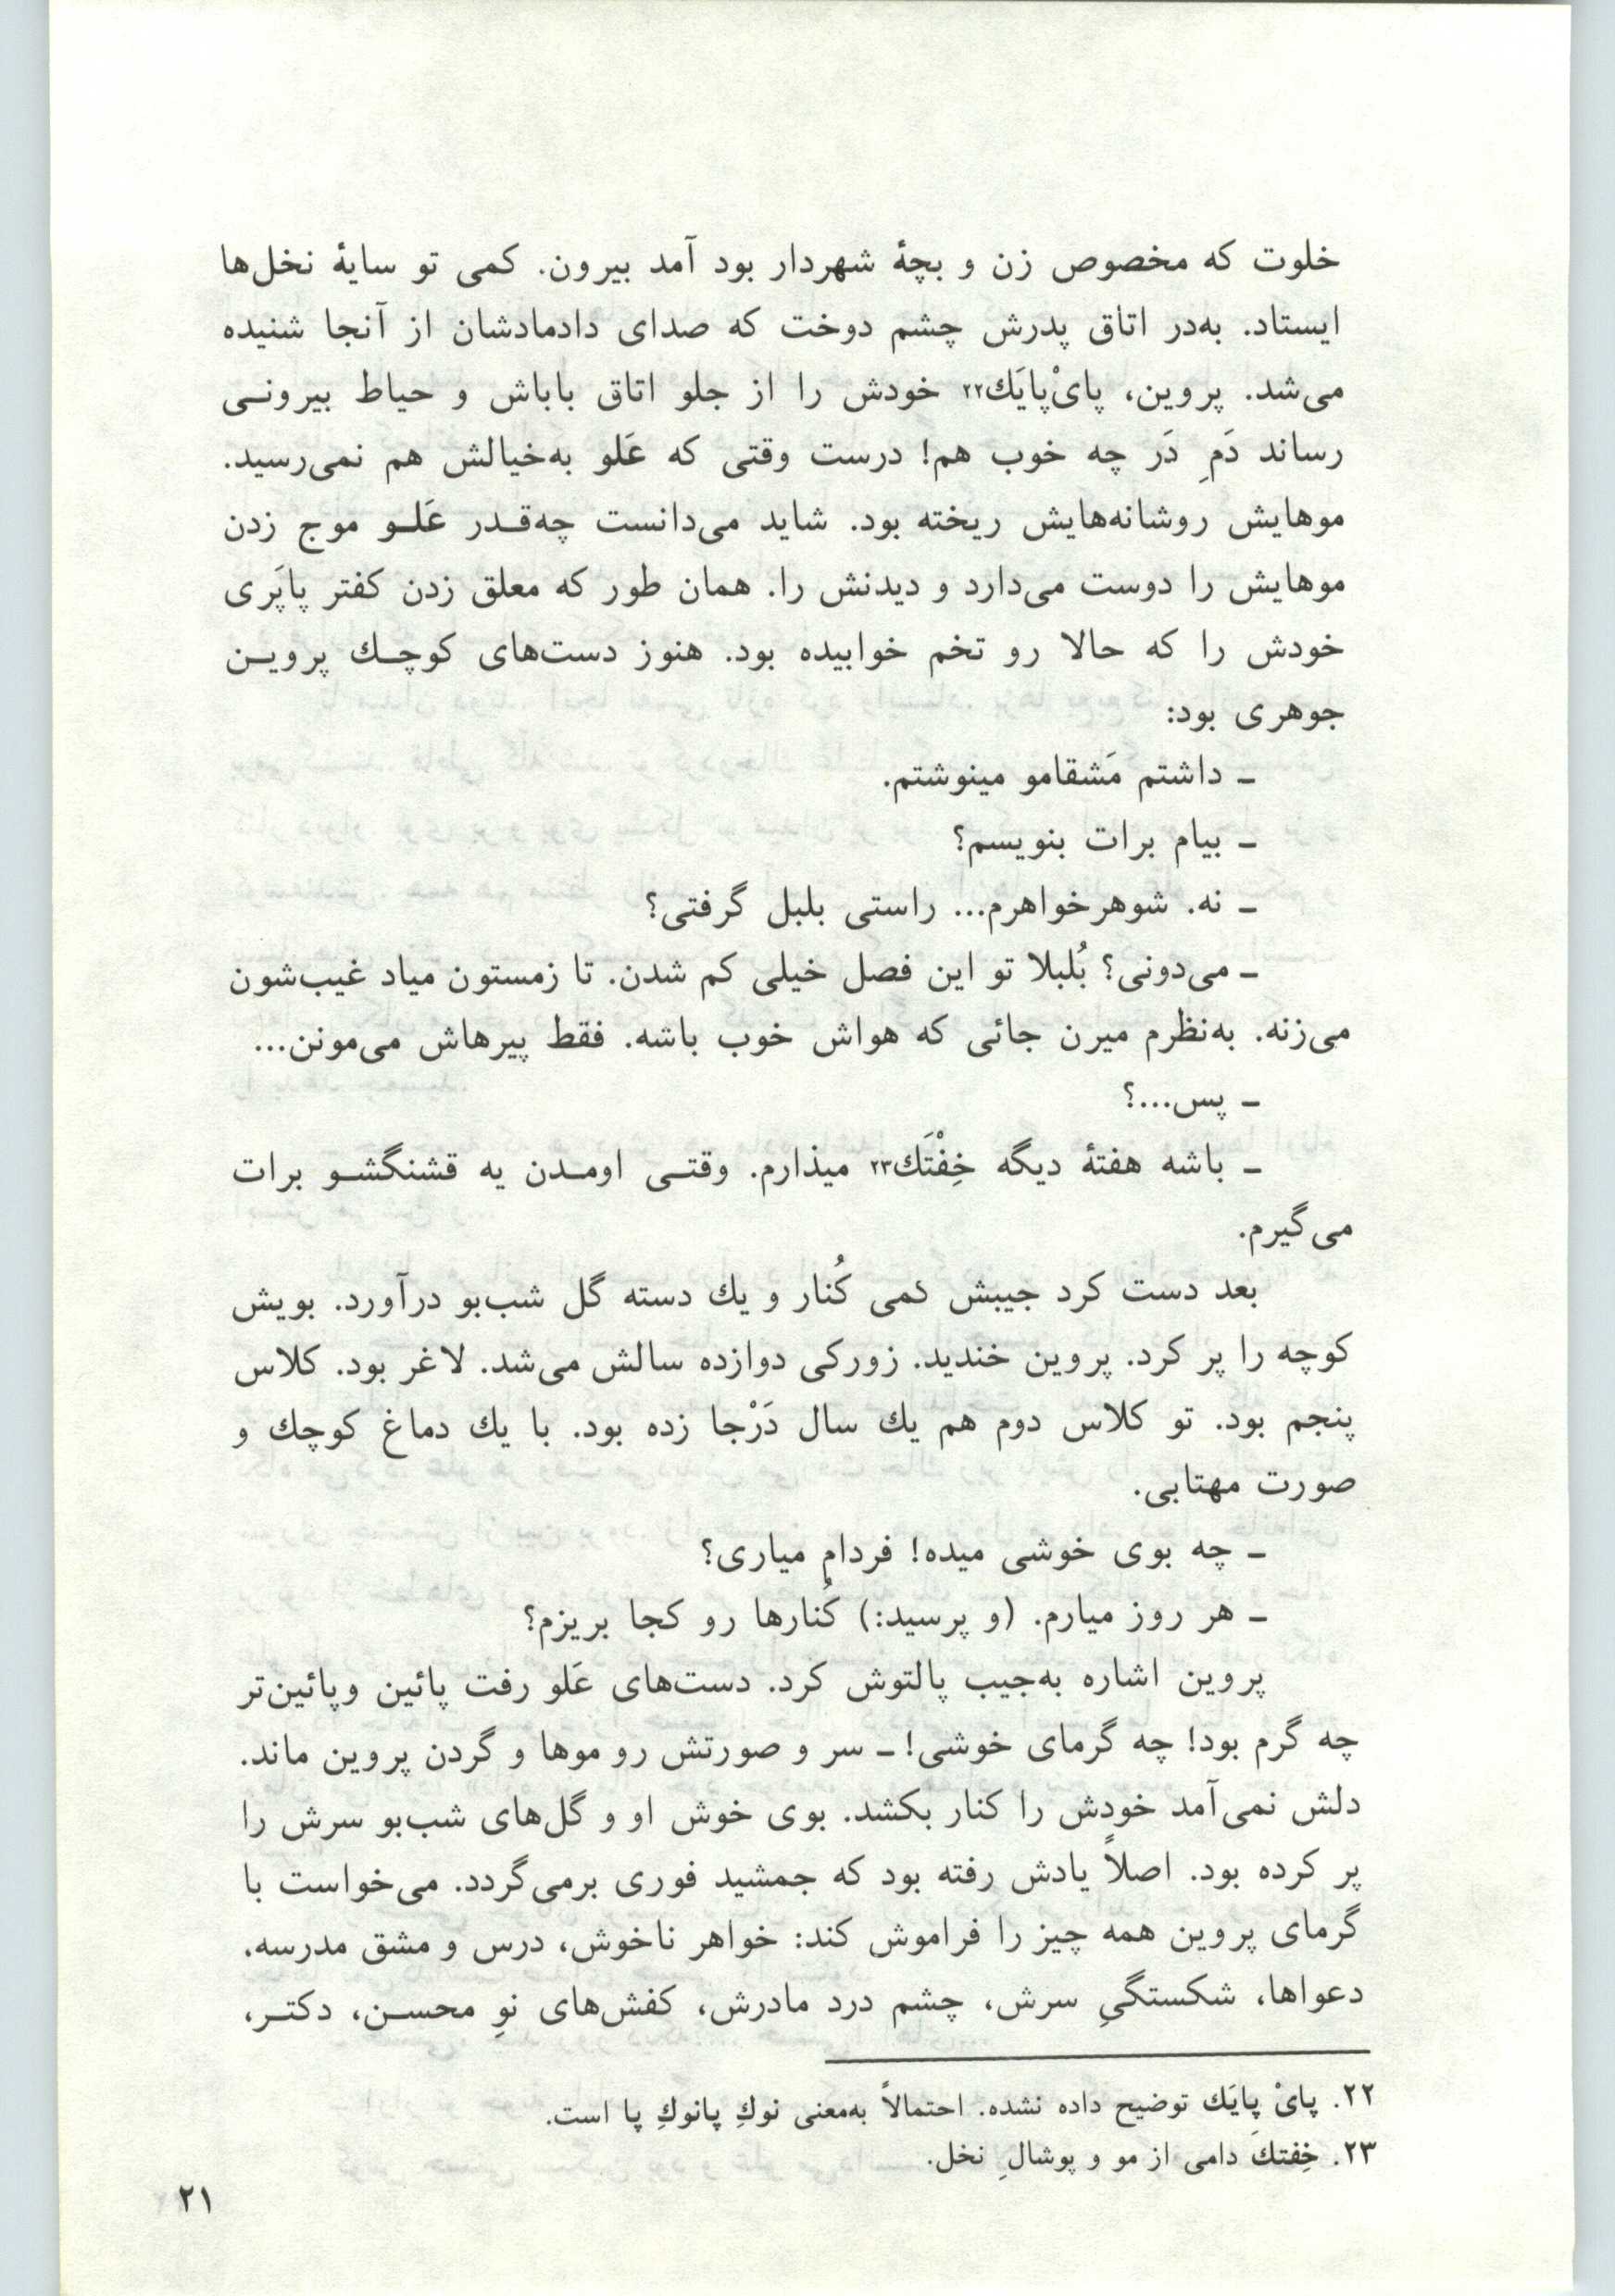 خلوت که مخصوص زن و بچهٔ شهردار بود آمد بیرون. کمی تو سایهٔ نخل‌ها
ایستاد. به‌در اتاق پدرش چشم دوخت که صدای دادمادشان از آنجا شنیده
می‌شد. پروین، پایْ‌پایَك۲۲ خودش را از جلو اتاق باباش و حیاط بیرونـی
رساند دَمِ دَر چه خوب هم! درست وقتی که عَلو به‌خیالش هم نمی‌رسید.
موهایش روشانه‌هایش ریخته بود. شاید می‌دانست چه‌قـدر عَلـو موج زدن
موهایش را دوست می‌دارد و دیدنش را. همان طور که معلق زدن کفتر پاپَری
خودش را که حالا رو تخم خوابیده بود. هنوز دست‌های کوچـك پرویـن
جوهری بود:
ـ داشتم مَشقامو مینوشتم.
ـ بیام برات بنویسم؟
ـ نه. شوهرخواهرم... راستی بلبل گرفتی؟
ـ می‌دونی؟ بُلبلا تو این فصل خیلی کم شدن. تا زمستون میاد غیب‌شون
می‌زنه. به‌نظرم میرن جائی که هواش خوب باشه. فقط پیرهاش می‌مونن...
ـ پس...؟
ـ باشه هفتهٔ دیگه خِفْتَك۲۳ میذارم. وقتـی اومـدن یه قشنگشـو برات
می‌گیرم.
بعد دست کرد جیبش کمی کُنار و یك دسته گل شب‌بو درآورد. بویش
کوچه را پر کرد. پروین خندید. زورکی دوازده سالش می‌شد. لاغر بود. کلاس
پنجم بود. تو کلاس دوم هم یك سال دَرْجا زده بود. با یك دماغ کوچك و
صورت مهتابی.
ـ چه بوی خوشی میده! فردام میاری؟
ـ هر روز میارم. (و پرسید:) کُنارها رو کجا بریزم؟
پروین اشاره به‌جیب پالتوش کرد. دست‌های عَلو رفت پائین وپائین‌تر
چه گرم بود! چه گرمای خوشی! ـ سر و صورتش رو موها و گردن پروین ماند.
دلش نمی‌آمد خودش را کنار بکشد. بوی خوش او و گل‌های شب‌بو سرش را
پر کرده بود. اصلاً یادش رفته بود که جمشید فوری برمی‌گردد. می‌خواست با
گرمای پروین همه چیز را فراموش کند: خواهر ناخوش، درس و مشق مدرسه.
دعواها، شکستگیِ سرش، چشم درد مادرش، کفش‌های نوِ محسـن، دکتـر،
۲۲. پایْ پایَك توضیح داده نشده. احتمالاً به‌معنی نوكِ پانوكِ پا است.
۲۳. خِفِتك دامی از مو و پوشالِ نخل.
۲۱